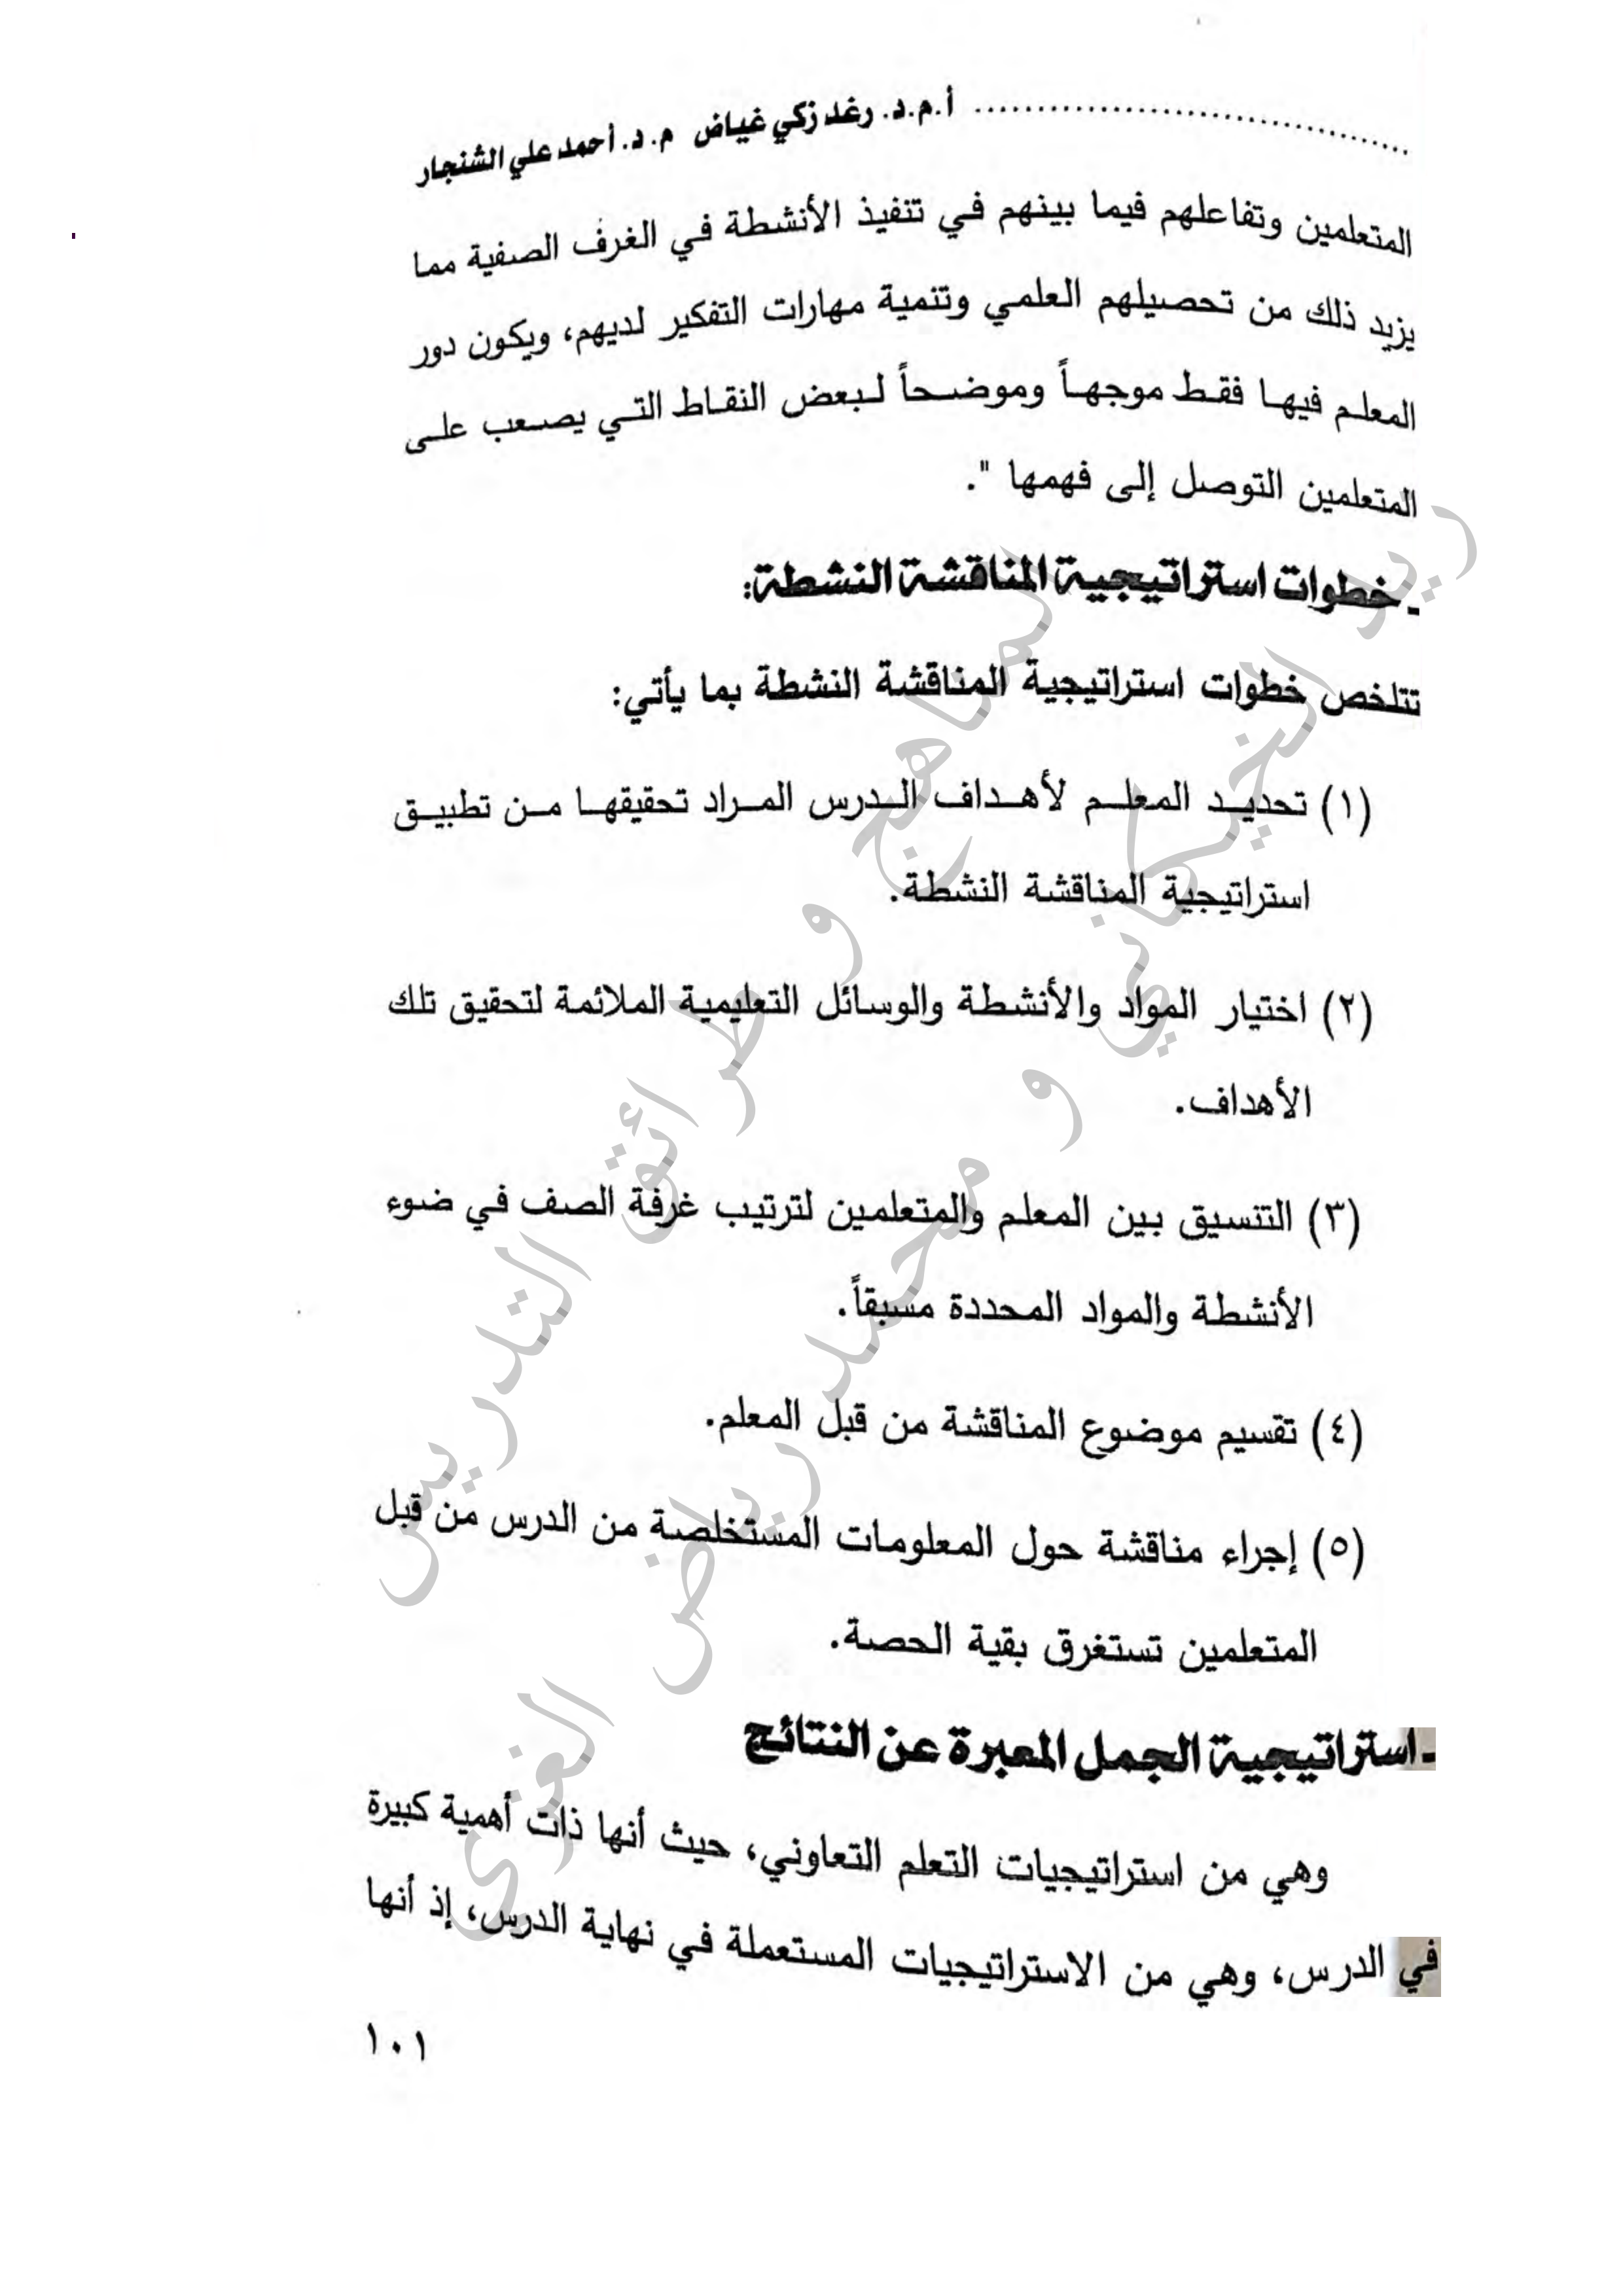 أ.م.د. رغد زكي غياض م. د. أحمد علي الشنجار
المتعلمين وتفاعلهم فيما بينهم في تنفيذ الأنشطة في الغرف الصفية مما
يزيد ذلك من تحصيلهم العلمي وتنمية مهارات التفكير لديهم، ويكون دور
المعلم فيها فقط موجهاً وموضحاً لبعض النقاط التي يصعب على
المتعلمين التوصل إلى فهمها ".
- خطوات استراتيجية المناقشة النشطة:
تتلخص خطوات استراتيجية المناقشة النشطة بما يأتي:
(١) تحديد المعلم لأهداف الدرس المراد تحقيقها من تطبيق
استراتيجية المناقشة النشطة.
(٢) اختيار المواد والأنشطة والوسائل التعليمية الملائمة لتحقيق تلك
الأهداف.
(٣) التنسيق بين المعلم والمتعلمين لترتيب غرفة الصف في ضوء
الأنشطة والمواد المحددة مسبقاً.
(٤) تقسيم موضوع المناقشة من قبل المعلم.
(٥) إجراء مناقشة حول المعلومات المستخلصة من الدرس من قبل
المتعلمين تستغرق بقية الحصة.
- استراتيجية الجمل المعبرة عن النتائج
وهي من استراتيجيات التعلم التعاوني، حيث أنها ذات أهمية كبيرة
في الدرس، وهي من الاستراتيجيات المستعملة في نهاية الدرس، إذ أنها
١٠١
لمناهج و طرائق التدريس
ريد الخيكاني و محمد رياض الغزي